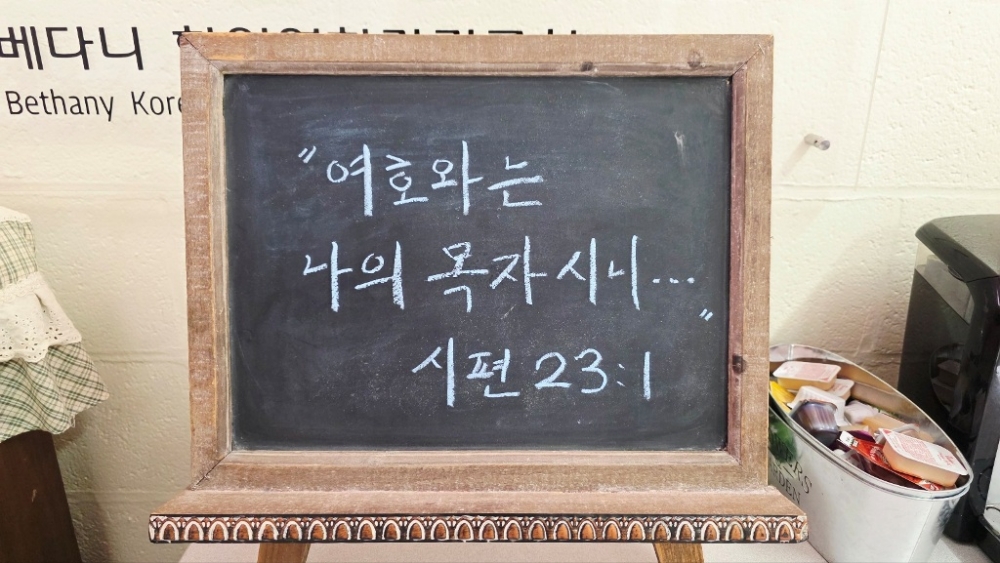 베다니
Bethany
"여호와는
나의 목자시니..."
시편 23:1